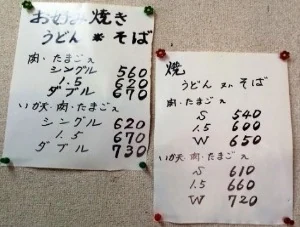 お好み焼き
うどん そば
肉・たまご入
シングル 560
1.5 620
ダブル 670
いか天・肉・たまご入
シングル 620
1.5 670
ダブル 730
焼
うどん そば
肉・たまご入
S 540
1.5 600
W 650
いか天・肉・たまご入
S 610
1.5 660
W 720